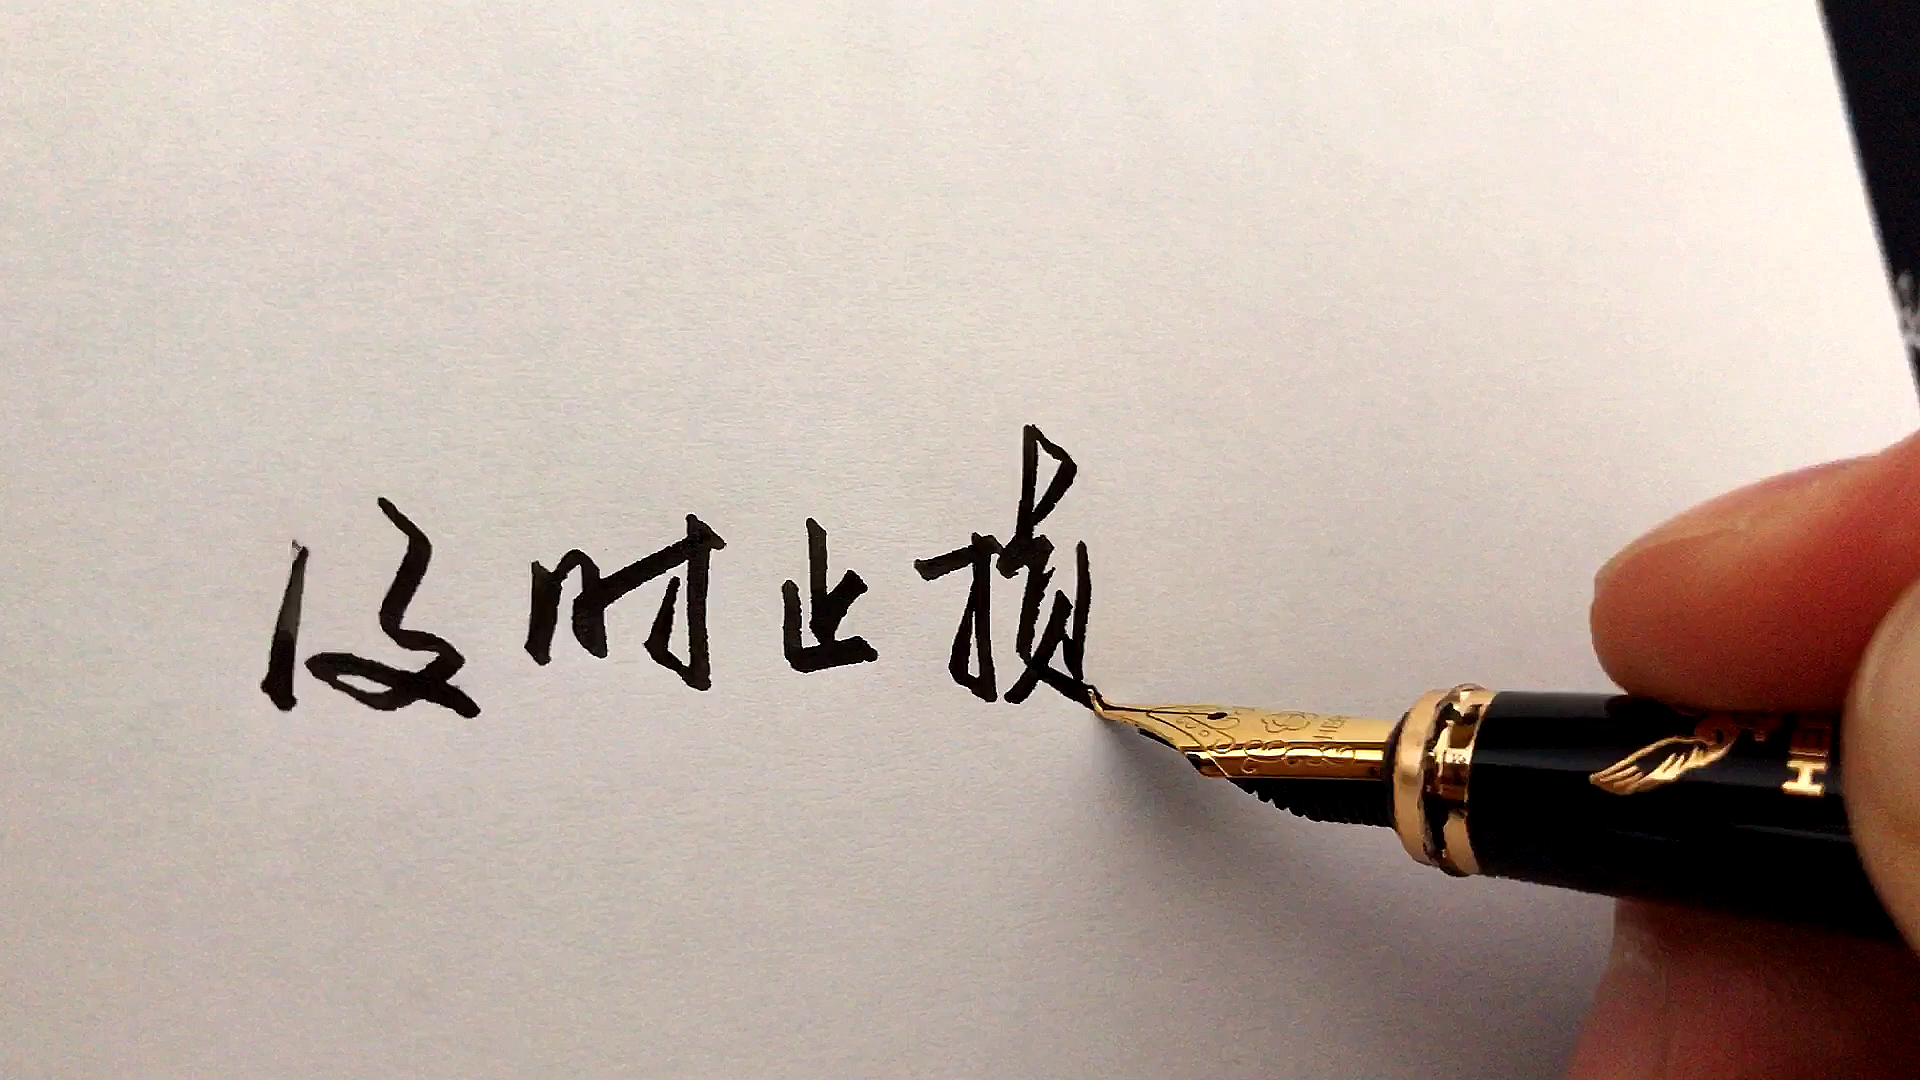 及时止损
HE